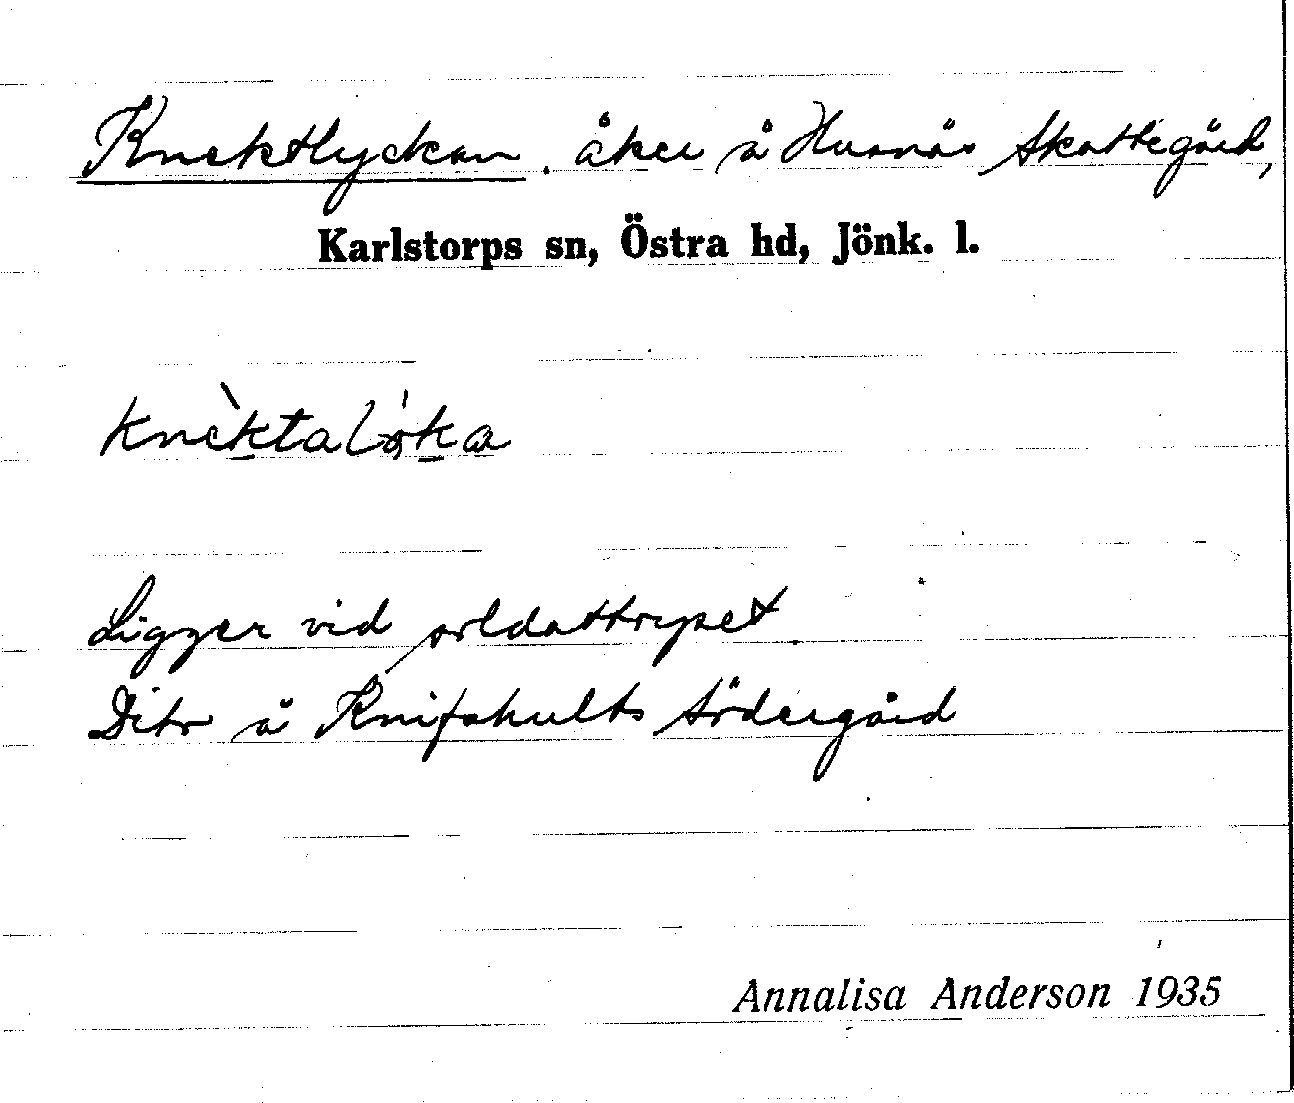 Knektlyckan, åker å Husnäs Skattegård,
Karlstorps sn, Östra hd, Jönk. l.
knèktalỳka
Ligger vid soldattorpet.
Dito å Knifshults Södergård
Annalisa Anderson 1935